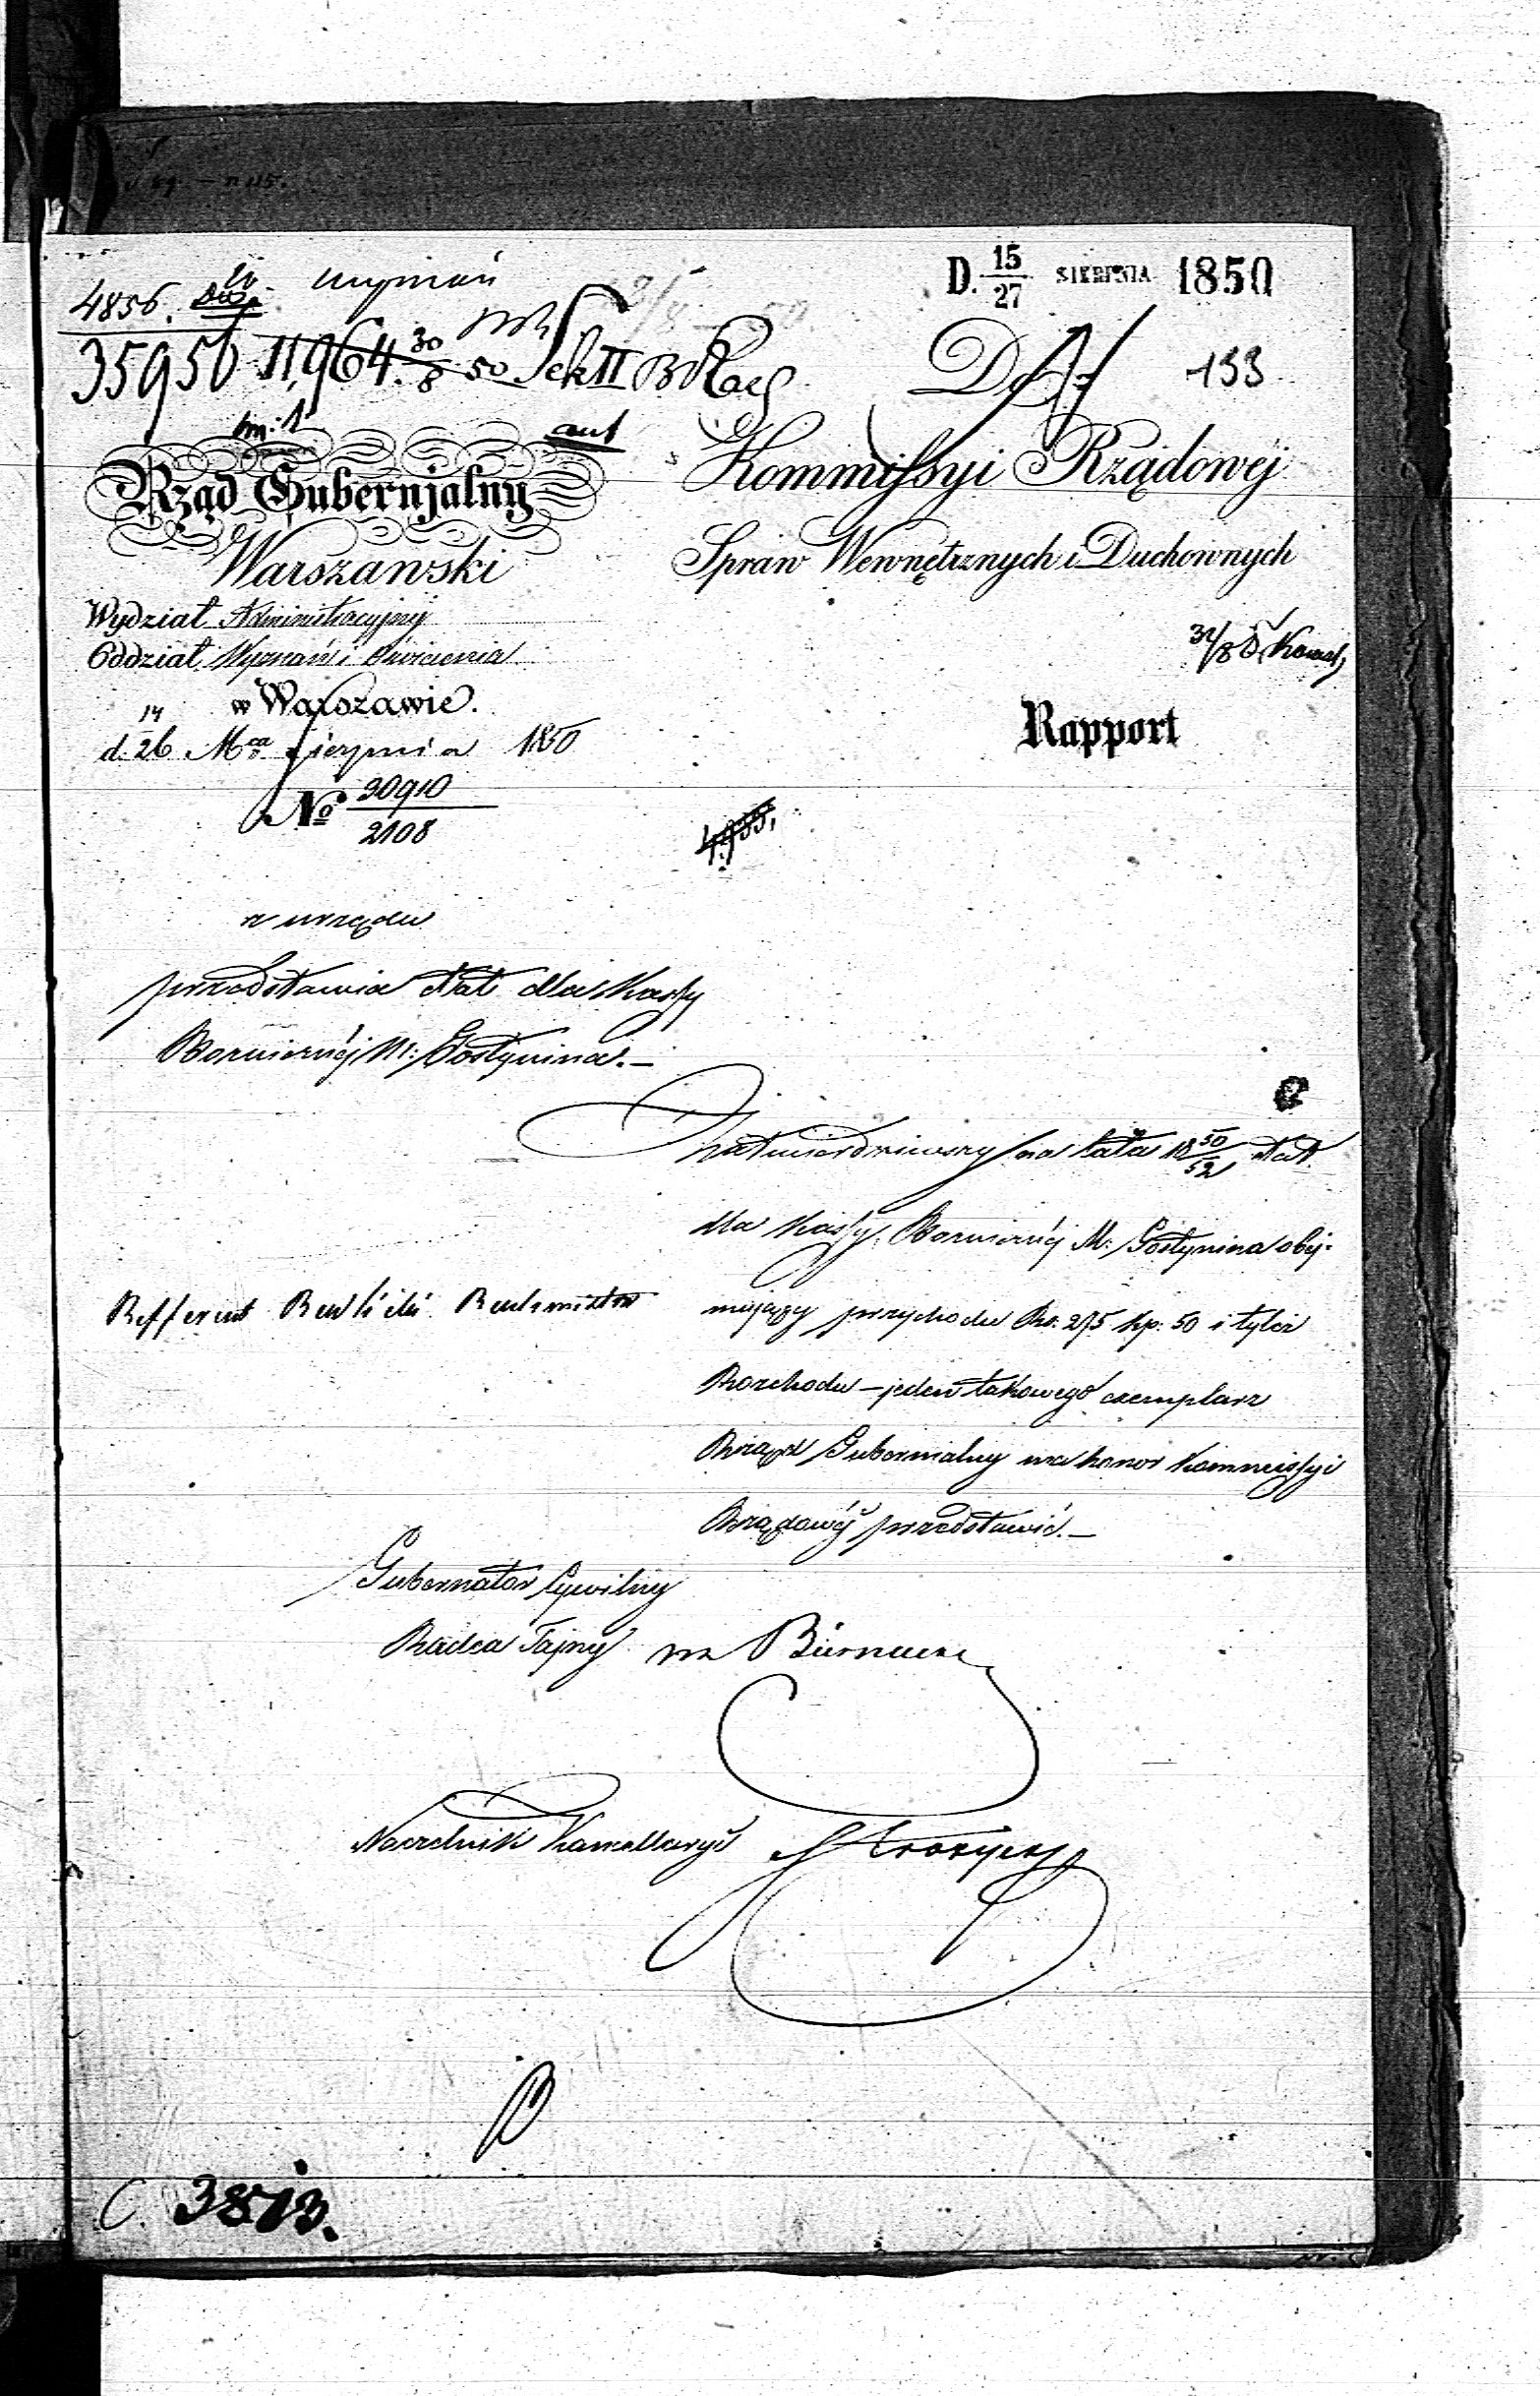 D. 15/27 SIERPNIA 1850
4856. Wyznań
35950 11,964. 30/8 50. Sek II
133
Do
Rząd Gubernjalny
Warszawski
Wydział Administracyjny
Oddział Wyznań i Oświecenia
w Warszawie.
d. 14/26 Mca Sierpnia 1850
No 30910/2108
Kommissyi Rządowéj
Spraw Wewnętrznych i Duchownych
31/8
Rapport
4935,
z urzędu
przedstawia Etat dla Kassy
Bożniczéj M: Gostynina.—
Zatwierdziwszy na lata 18 50/52 Etat
dla Kassy Bożniczéj M: Gostynina obéj-
mujący przychodu Rs: 275 kp: 50 i tyleż
Rozchodu — jeden takowego exemplarz
Rząd Gubernialny ma honor Kommissyi
Rządowéj przedstawić.—
Refferent
Gubernator Cywilny
Radca Tajny
Naczelnik Kancellaryi
C. 3873.